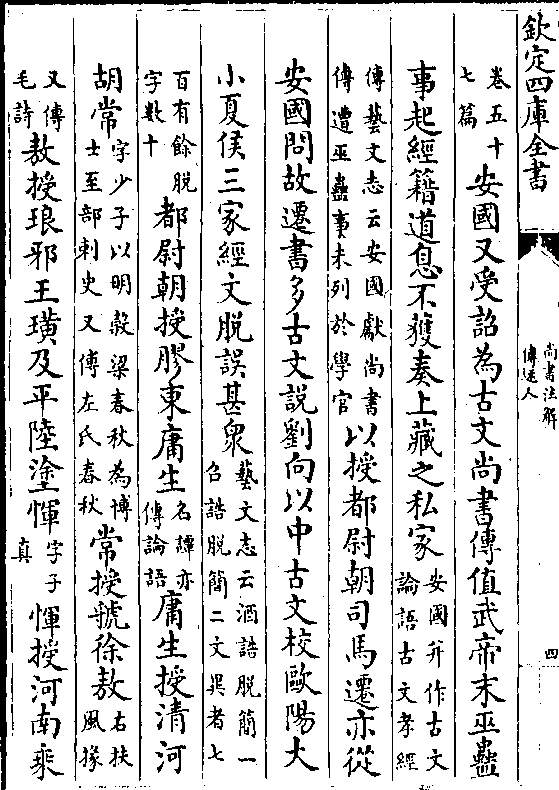 欽定四庫全書
尚書注解
傳述人
四
卷五十
七篇
安國又受詔為古文尚書傳值武帝末巫蠱
事起經籍道息不獲奏上藏之私家
安國并作古文
論語古文孝經
傳藝文志云安國獻尚書
傳遭巫蠱事未列於學官
以授都尉朝司馬遷亦從
安國問故遷書多古文說劉向以中古文校歐陽大
小夏侯三家經文脫誤甚衆
藝文志云酒誥脫簡一
召誥脫簡二文異者七
百有餘脫
字數十
都尉朝授膠東庸生
名譚亦
傳論語
庸生授清河
胡常
字少子以明穀梁春秋為博
士至部刺史又傳左氏春秋
常授虢徐敖
右扶
風掾
又傳
毛詩
敖授琅邪王璜及平陸塗惲
字子
真
惲授河南乘